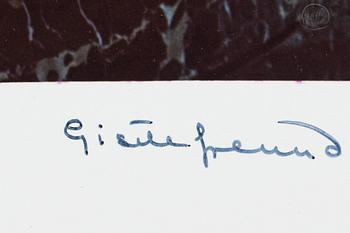 Gisèle Freund